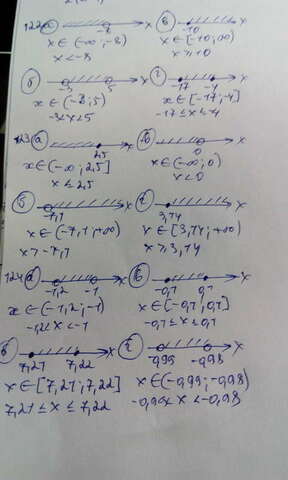 122 а) -8 x
x ∈ (-∞; -8)
x < -8
в) -10 x
x ∈ [-10; ∞)
x ≥ -10
б) -3 5 x
x ∈ (-3; 5)
-3 < x < 5
г) -17 -4 x
x ∈ [-17; -4]
-17 ≤ x ≤ -4
123 а) 2,5 x
x ∈ (-∞; 2,5]
x ≤ 2,5
в) 0 x
x ∈ (-∞; 0)
x < 0
б) -7,1 x
x ∈ (-7,1; +∞)
x > -7,1
г) 3,74 x
x ∈ [3,74; +∞)
x ≥ 3,74
124 а) -1,2 -1 x
x ∈ (-1,2; -1)
-1,2 < x < -1
в) -0,1 0,1 x
x ∈ [-0,1; 0,1]
-0,1 ≤ x ≤ 0,1
б 7,21 7,22 x
x ∈ [7,21; 7,22]
7,21 ≤ x ≤ 7,22
г) -0,99 -0,98 x
x ∈ (-0,99; -0,98)
-0,99 < x < -0,98